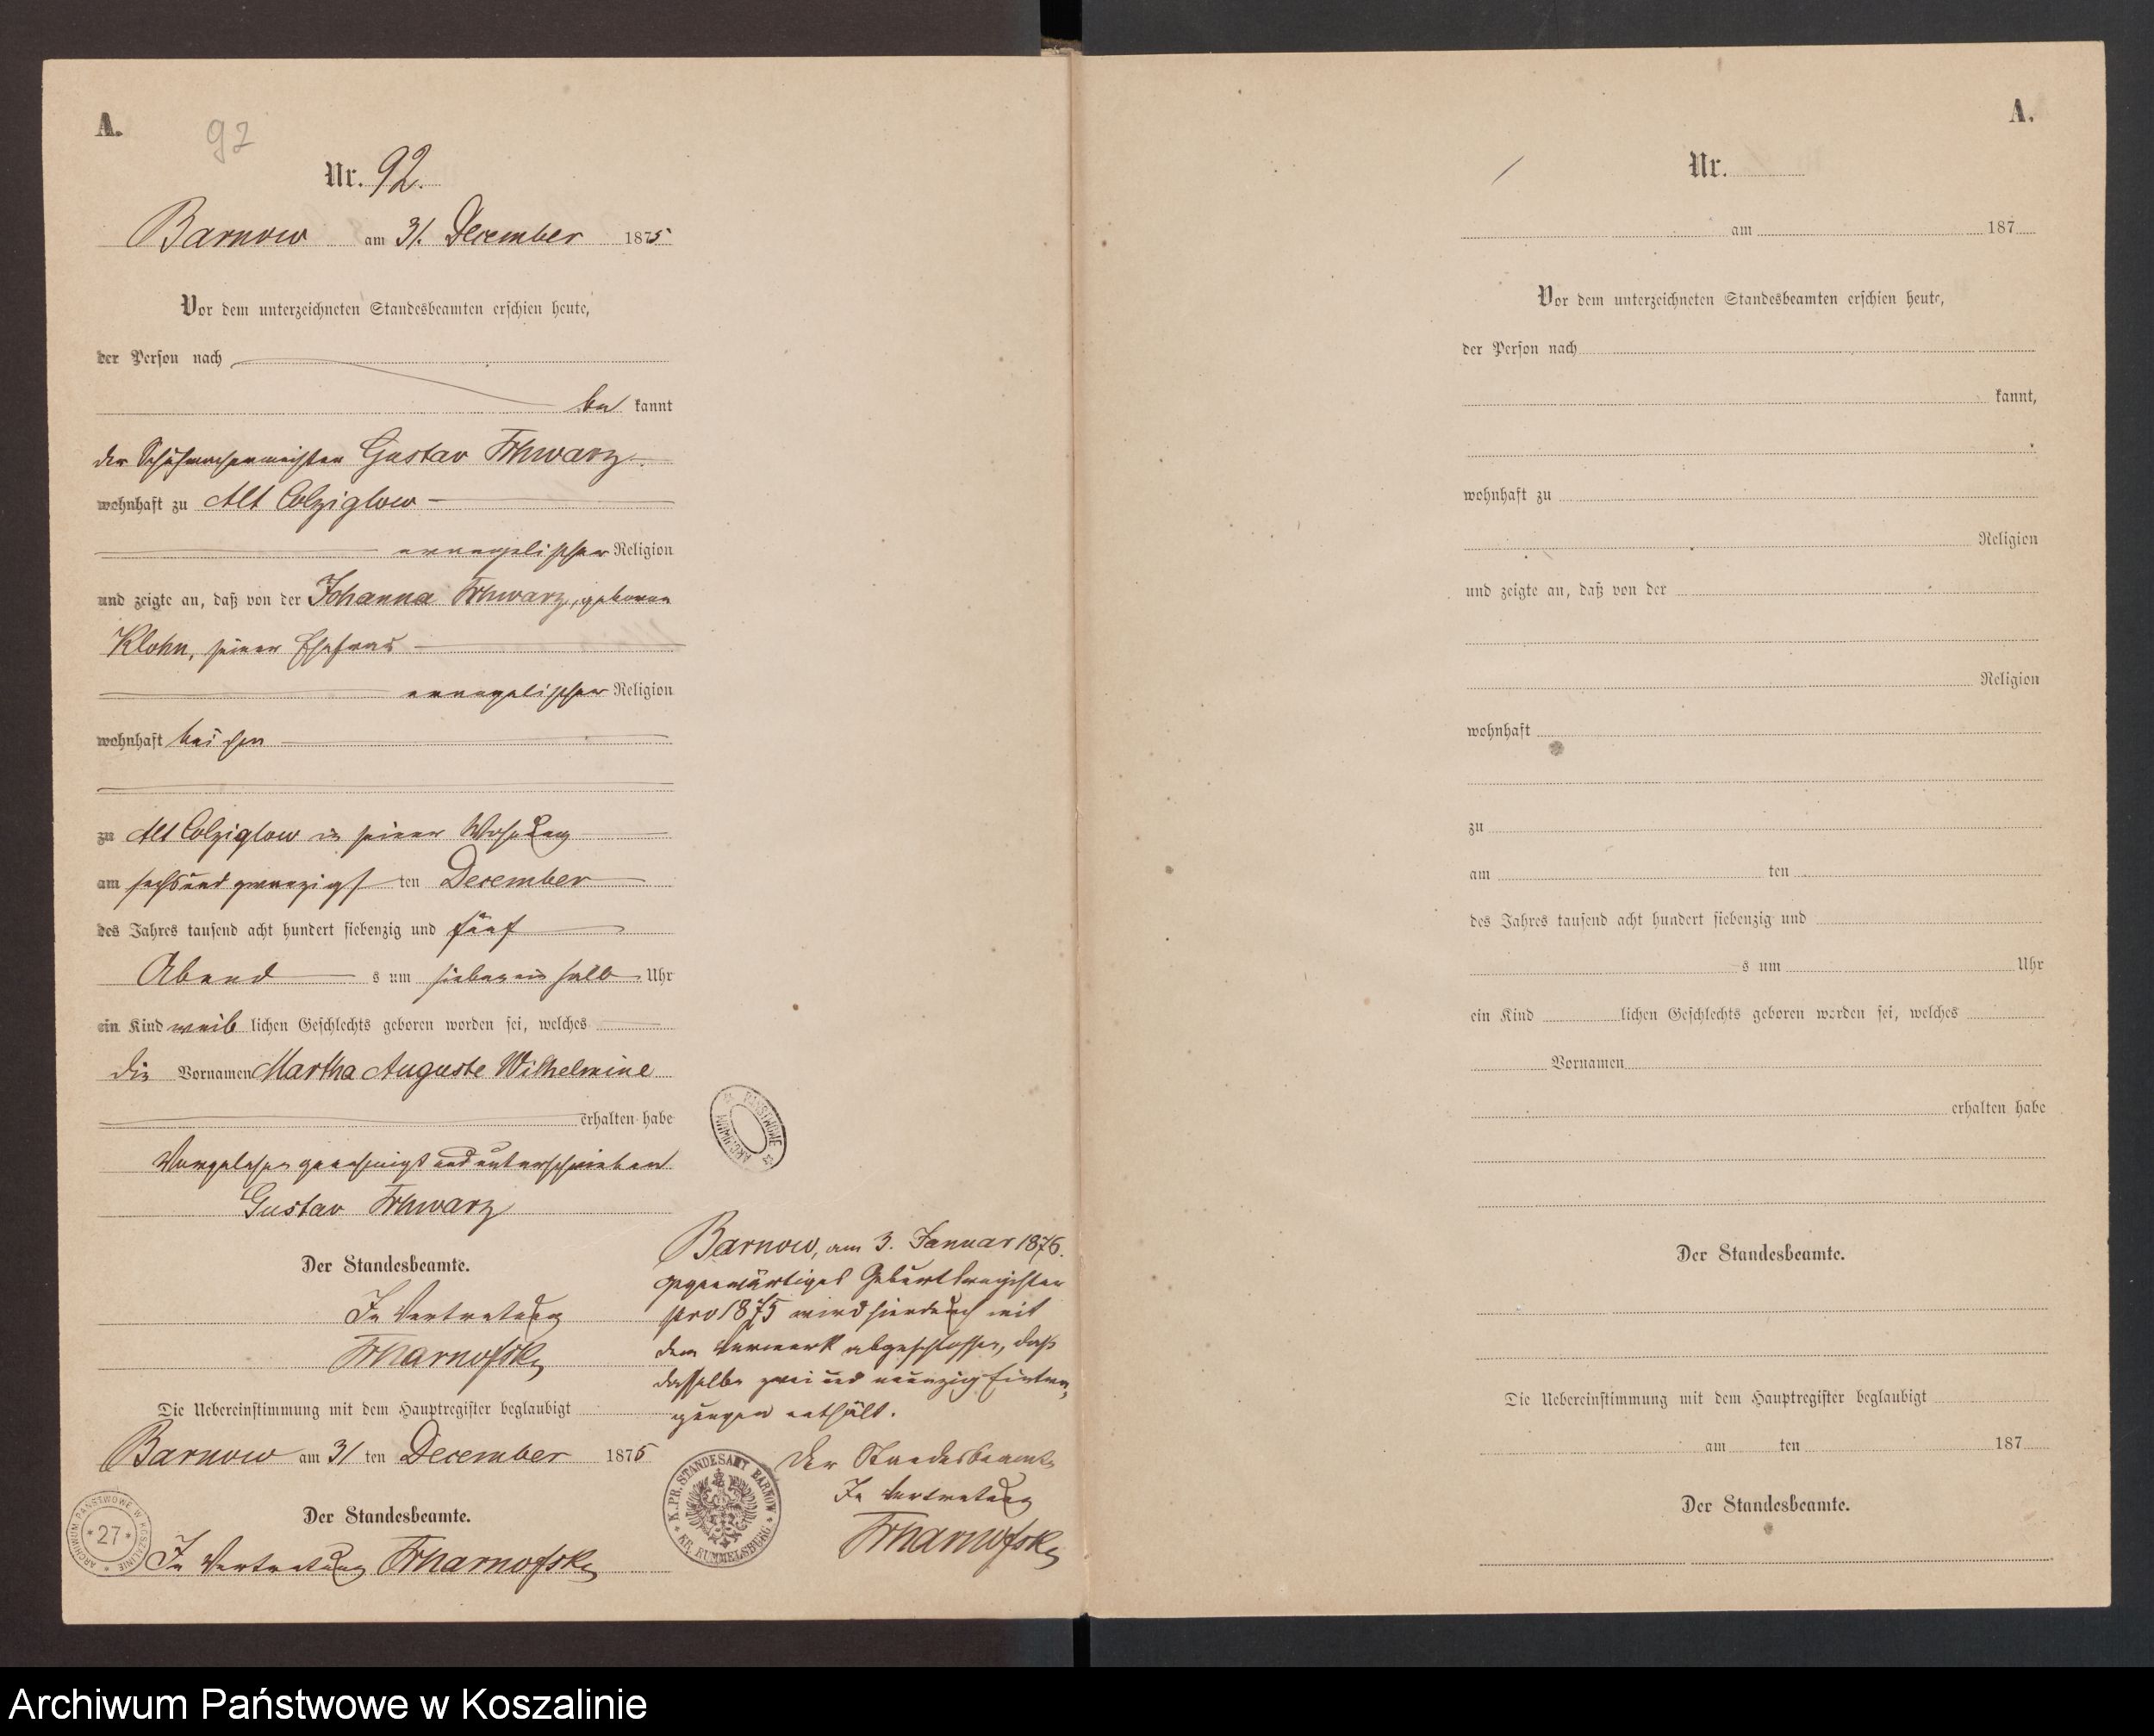 A.
92
Nr. 92.
Barnow am 31. December 1875
Vor dem unterzeichneten Standesbeamten erschien heute,
der Person nach
be kannt
der Schuhmachermeister Gustav Schwarz
wohnhaft zu Alt Colziglow
evangelischer Religion
und zeigte an, daß von der Johanna Schwarz, geboren
Klohn, seiner Ehefrau
evangelischer Religion
wohnhaft bei ihm
zu Alt Colziglow in seiner Wohnung
am sechsundzwanzigs ten December
des Jahres tausend acht hundert siebenzig und fünf
Abend s um siebenein halb Uhr
ein Kind weib lichen Geschlechts geboren worden sei, welches
die Vornamen Martha Auguste Wilhelmine
erhalten habe
Vorgelesen genehmigt und unterschrieben
Gustav Schwarz
Der Standesbeamte.
In Vertretung
Die Uebereinstimmung mit dem Hauptregister beglaubigt
Barnow am 31 ten December 1875
Der Standesbeamte.
In Vertretung
ARCHIWUM PAŃSTWOWE W KOSZALINIE
27
ARCHIWUM PAŃSTWOWE
Barnow, am 3. Januar 1876.
Gegenwärtiges Geburtsregister
pro 1875 wird hierdurch mit
dem Vermerk abgeschlossen, daß
dasselbe zwei und neunzig Eintra-
gungen enthält.
Der Standesbeamte
In Vertretung
K. PR. STANDESAMT BARNOW
KR. RUMMELSBURG
A.
Nr.
am 187
Vor dem unterzeichneten Standesbeamten erschien heute,
der Person nach
kannt,
wohnhaft zu
Religion
und zeigte an, daß von der
Religion
wohnhaft
zu
am ten
des Jahres tausend acht hundert siebenzig und
s um Uhr
ein Kind lichen Geschlechts geboren worden sei, welches
Vornamen
erhalten habe
Der Standesbeamte.
Die Uebereinstimmung mit dem Hauptregister beglaubigt
am ten 187
Der Standesbeamte.
Archiwum Państwowe w Koszalinie